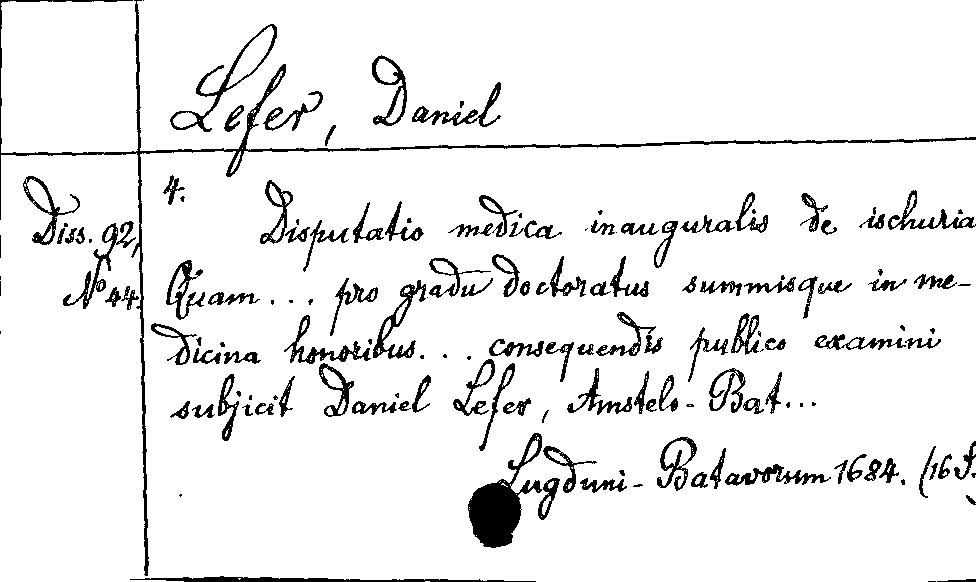 Lefer, Daniel
4.
Diss. 92,
No 44.
Disputatio medica inauguralis de ischuria
Quam... pro gradu doctoratus summisque in me-
dicina honoribus... consequendis publico examini
subjicit Daniel Lefer, Amstelo-Bat...
Lugduni-Batavorum 1684. (16 S.